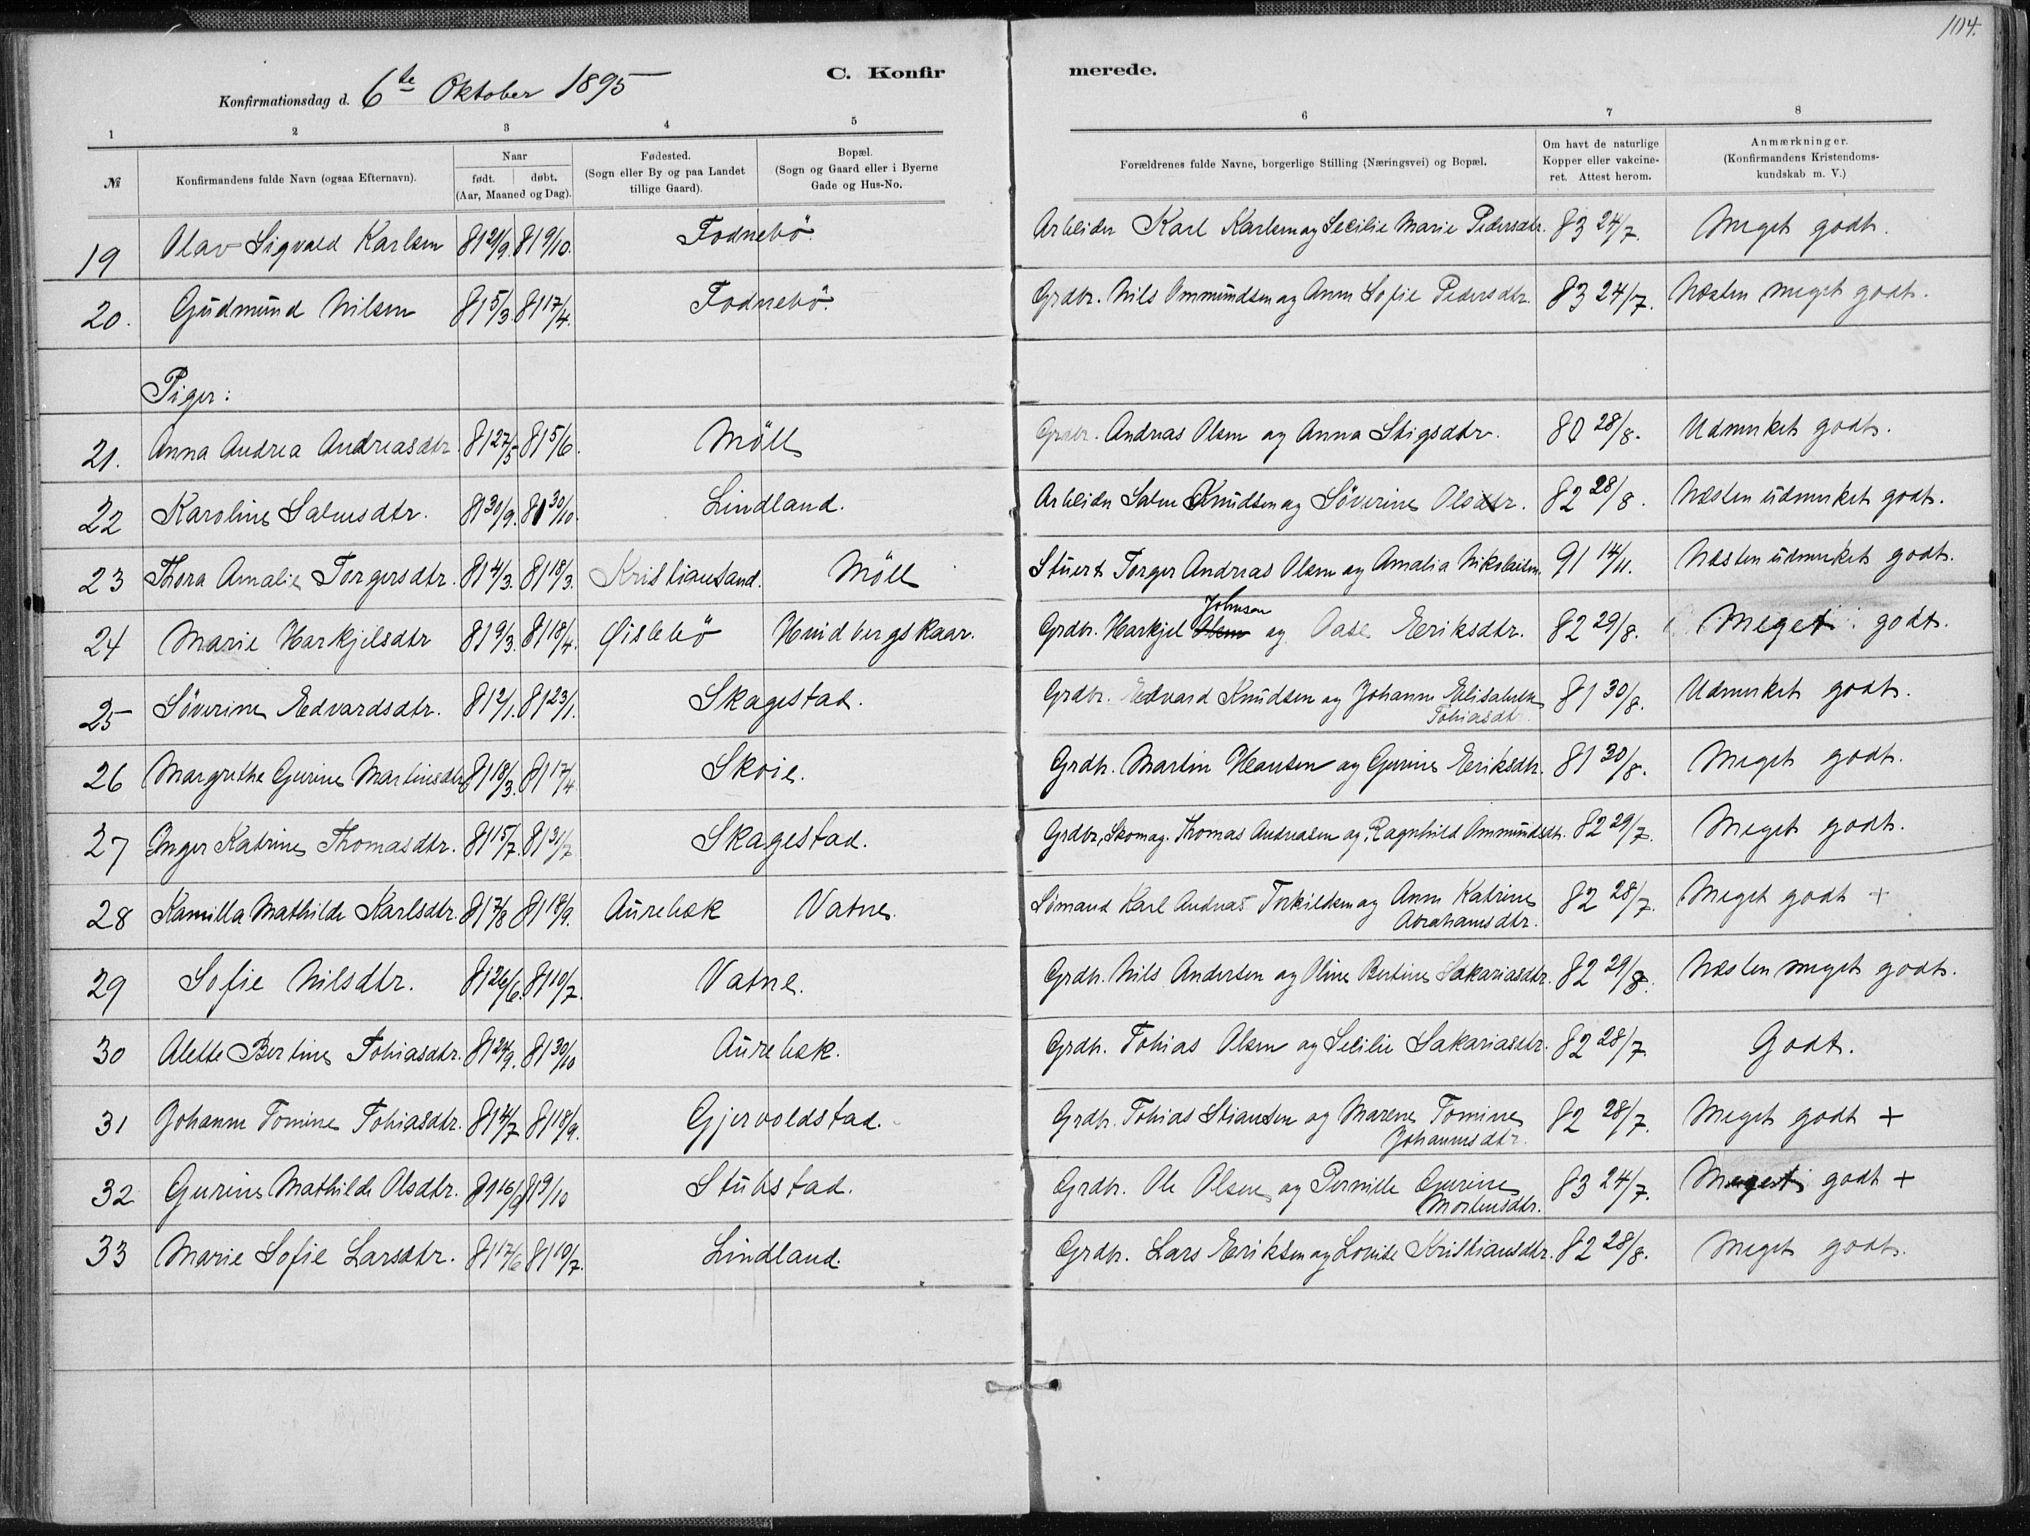 104.
C. Konfirmerede.
Konfirmationsdag d. 6te Oktober 1895
1 2 3 4 5 6 7 8
№ Konfirmandens fulde Navn (ogsaa Efternavn). Naar født. døbt. (Aar, Maaned og Dag). Fødested. (Sogn eller By og paa Landet tillige Gaard). Bopæl. (Sogn og Gaard eller i Byerne Gade og Hus-No. Forældrenes fulde Navne, borgerlige Stilling (Næringsvei) og Bopæl. Om havt de naturlige Kopper eller vakcineret. Attest herom. Anmærkninger. (Konfirmandens Kristendomskundskab m. V.)
19 Olav Sigvald Karlsen 81 21/9. 81 9/10. Fodnebö. Arbeider Karl Karlsen og Secilie Marie Pedersdtr. 83 24/7. Meget godt.
20. Gudmund Nilsen 81 5/3. 81 17/4. Fodnebö. Grdbr. Nils Ommundsen og Anne Sofie Pedersdtr. 83 24/7. Næsten meget godt.
Piger:
21. Anna Andrea Andreasdtr. 81 27/5 81 5/6. Möll Grdbr. Andreas Olsen og Anna Stigsdtr. 80 28/8. Udmerket godt.
22 Karoline Salvesdtr. 81 30/9. 81 30/10. Lindland. Arbeider Salve Knudsen og Söverine Olsdtr. 82 28/8. Næsten udmerket godt.
23 Thora Amalie Torgersdtr. 81 4/3. 81 18/3. Kristiansand. Möll Stuert Torger Andreas Olsen og Amalia Nikolaisen 91 14/11. Næsten udmerket godt.
24 Marie Harkjelsdtr 81 9/3. 81 18/4. Øislebö Hnidbergskaar. Grdbr. Harkjel Olsen Johnsen og Aase Eriksdtr. 82 29/8. Meget godt.
25 Söverine Edvardsdtr. 81 2/1. 81 23/1. Skagestad. Grdbr. Edvard Knudsen og Johanne Elisabeth Tobiasdtr. 81 30/8. Udmerket godt.
26 Margrethe Gurine Martinsdtr 81 18/3. 81 17/4 Skoie. Grdbr. Martin Hansen og Gurine Eriksdtr. 81 30/8. Meget godt.
27 Inger Katrine Thomasdtr. 81 15/7. 81 31/7 Skagestad. Grdbr, Skomag. Thomas Andreasen og Ragnhild Ommundsdtr. 82 29/7. Meget godt.
28 Kamilla Mathilde Karlsdtr. 81 7/8 81 18/9. Aurebæk Vatne. Sömand Karl Andreas Torkildsen og Anne Katrine Abrahamsdtr. 82 28/7. Meget godt +
29 Sofie Nilsdtr. 81 26/6. 81 10/7. Vatne. Grdbr. Nils Andersen og Oline Bertine Sakariasdtr. 82 29/8. Næsten meget godt.
30 Alette Bertine Tobiasdtr. 81 24/9. 81 30/10 Aurebæk. Grdbr. Tobias Olsen og Secilie Sakariasdtr. 82 28/7. Godt.
31 Johanne Tomine Tobiasdtr. 81 4/7 81 18/9. Gjervoldstad. Grdbr. Tobias Stiansen og Marene Tomine Johannesdtr. 82 28/7. Meget godt +
32 Gurine Mathilde Olsdtr. 81 16/9 81 9/10 Stubstad. Grdbr. Ole Olsen og Pernille Gurine Mortensdtr. 83 24/7. Meget godt +
33 Marie Sofie Larsdtr. 81 17/6 81 10/7. Lindland. Grdbr. Lars Eriksen og Lovise Kristiansdtr. 82 28/8. Meget godt.